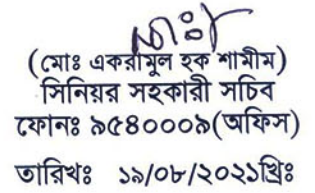 (মোঃ একরামুল হক শামীম)
সিনিয়র সহকারী সচিব
ফোনঃ ৯৫৪০০০৯(অফিস)
তারিখঃ ১৯/০৮/২০২১খ্রিঃ